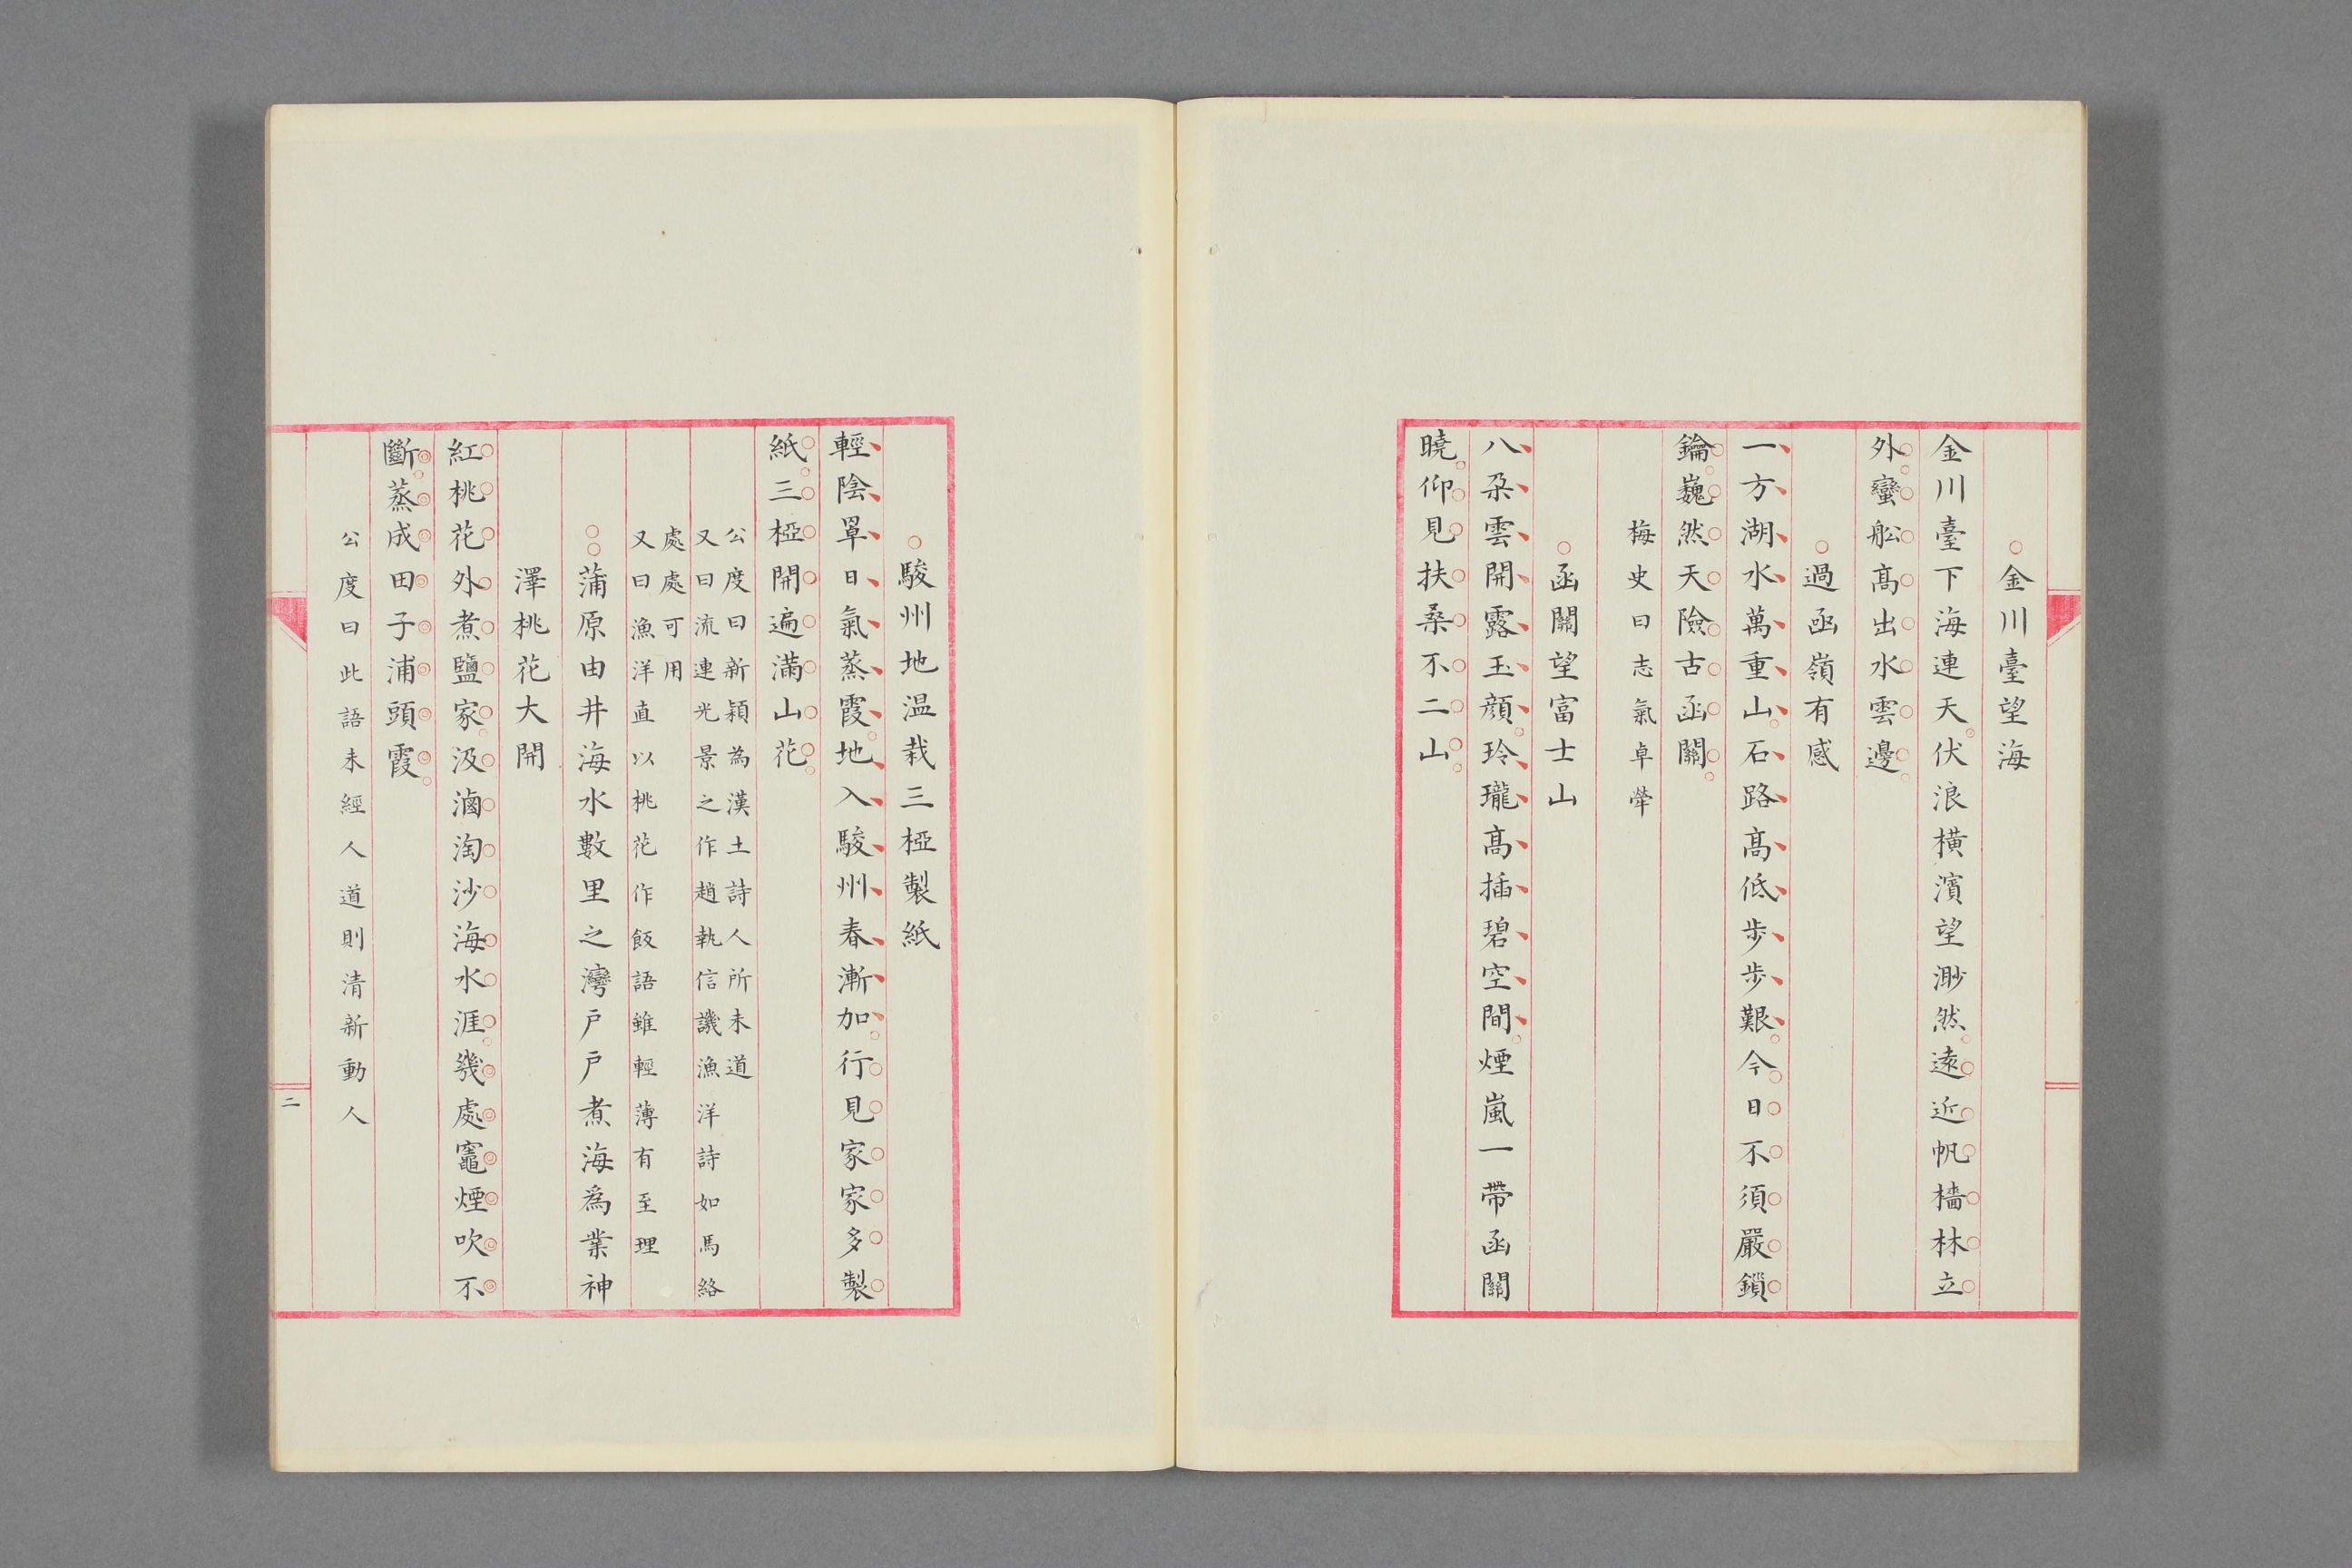 金川臺望海
金川臺下海連天伏浪橫濱望渺然遠近帆檣林立
外蠻船髙出水雲邊
過函嶺有感
一方湖水萬重山石路髙低步步艱今日不須嚴鎖
鑰巍然天險古函關
梅史曰志氣卓犖
函關望富士山
八朶雲開露玉顔玲瓏髙插碧空間煙嵐一帶函關
曉仰見扶桑不二山
駿州地温栽三椏製紙
輕陰罩日氣蒸霞地入駿州春漸加行見家家多製
紙三椏開遍滿山花
公度曰新穎為漢土詩人所未道
又曰流連光景之作趙執信譏漁洋詩如馬絡
處處可用
又曰漁洋直以桃花作飯語雖輕薄有至理
蒲原由井海水數里之灣戸戸煮海爲業神
澤桃花大開
紅桃花外煮鹽家汲滷淘沙海水涯幾處竈煙吹不
斷蒸成田子浦頭霞
公度曰此語未經人道則清新動人
二